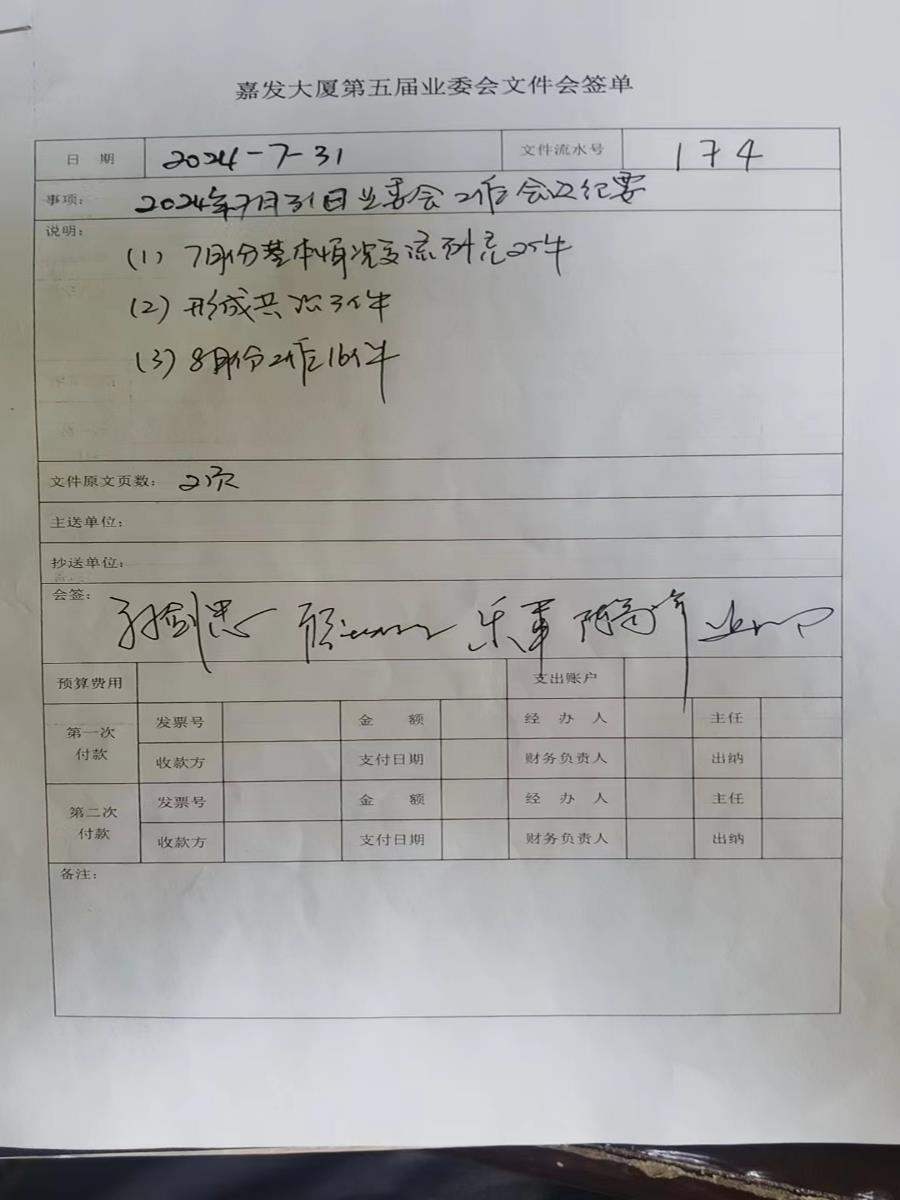 嘉发大厦第五届业委会文件会签单
日 期 2024-7-31 文件流水号 174
事项: 2024年7月31日业委会工作会议纪要
说明:
(1) 7月份基本情况交流 25件
(2) 形成共识3件
(3) 8月份工作16件
文件原文页数: 2页
主送单位:
抄送单位:
会签: 孙剑忠 乐军
预算费用 支出账户
第一次付款 发票号 金 额 经 办 人 主任
收款方 支付日期 财务负责人 出纳
第二次付款 发票号 金 额 经 办 人 主任
收款方 支付日期 财务负责人 出纳
备注: